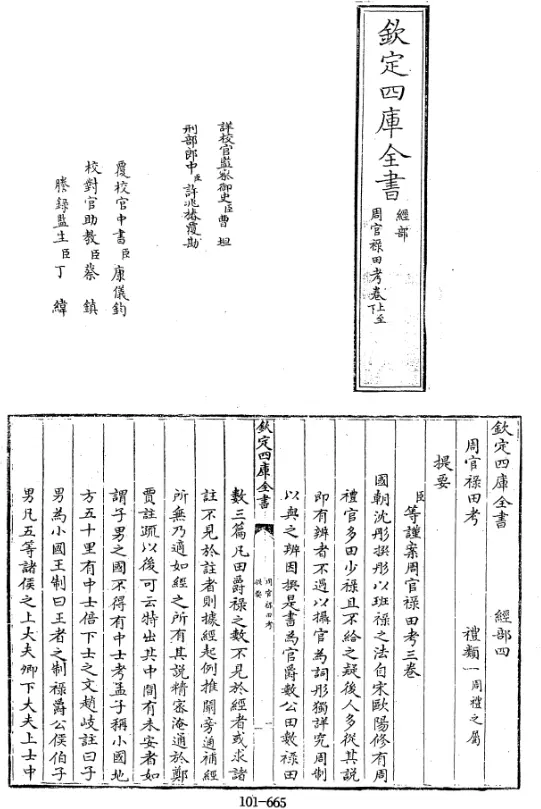 欽定四庫全書
經部
周官祿田考卷上至
下
詳校官監察御史臣曹坦
刑部郎中臣許兆椿覆勘
覆校官中書臣康儀鈞
校對官助教臣蔡鎮
謄錄監生臣丁緯
欽定四庫全書
經部四
周官祿田考
禮類一周禮之屬
提要
臣等謹案周官祿田考三卷
國朝沈彤撰彤以班祿之法自宋歐陽修有周
禮官多田少祿且不給之疑後人多從其說
即有辨者不過以攝官為詞彤獨詳究周制
以與之辨因撰是書為官爵數公田數祿田
欽定四庫全書
周官祿田考
提要
一
數三篇凡田爵祿之數不見於經者或求諸
註不見於註者則據經起例推闡旁通補經
所無乃適如經之所有其說精密淹通於鄭
賈註疏以後可云特出其中間有未安者如
謂子男之國不得有中士考孟子稱小國地
方五十里有中士倍下士之文趙岐註曰子
男為小國王制曰王者之制祿爵公侯伯子
男凡五等諸侯之上大夫卿下大夫上士中
101-665